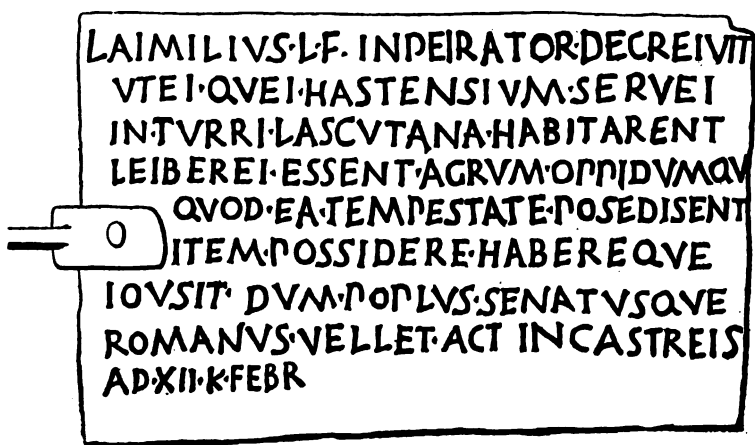 LAIMILIVS·L·F·INPEIRATOR·DECREIVIT
VTEI·QVEI·HASTENSIVM·SERVEI
IN·TVRRI·LASCVTANA·HABITARENT
LEIBEREI·ESSENT·AGRVM·OPPIDVMQV
QVOD·EA·TEMPESTATE·POSEDISENT
ITEM·POSSIDERE·HABEREQVE
IOVSIT·DVM·POPLVS·SENATVSQVE
ROMANVS·VELLET·ACT IN CASTREIS
AD·XII·K·FEBR